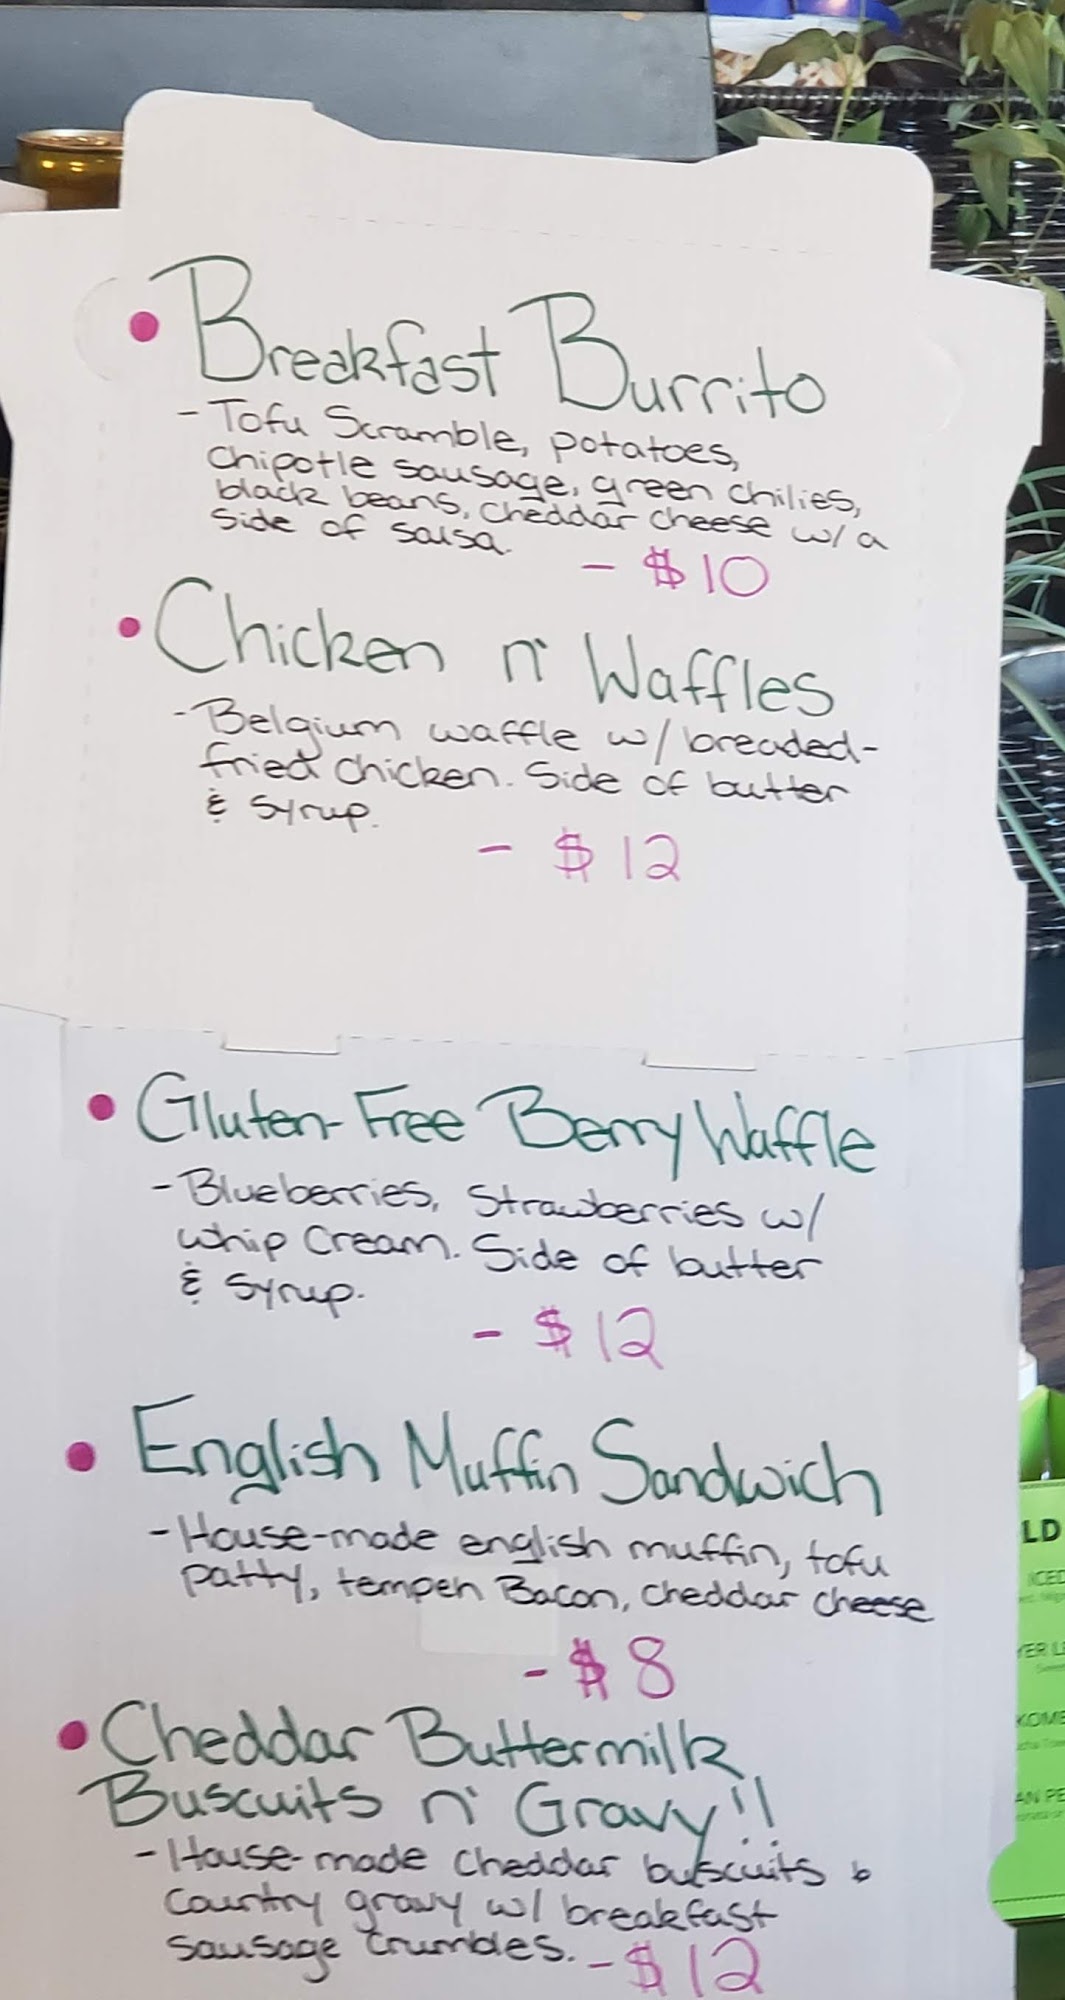 • Breakfast Burrito
- Tofu Scramble, potatoes,
chipotle sausage, green chilies,
black beans, cheddar cheese w/ a
side of salsa.
- $10
• Chicken n' Waffles
- Belgium waffle w/ breaded-
fried chicken. Side of butter
& syrup.
- $12
• Gluten-Free Berry Waffle
- Blueberries, Strawberries w/
whip cream. Side of butter
& syrup.
- $12
• English Muffin Sandwich
- House-made english muffin, tofu
patty, tempeh Bacon, cheddar cheese
- $8
• Cheddar Buttermilk
Buscuits n' Gravy!!
- House-made cheddar buscuits &
country gravy w/ breakfast
sausage crumbles.
- $12
LD
ICED
YER L
KOMB
AN PE